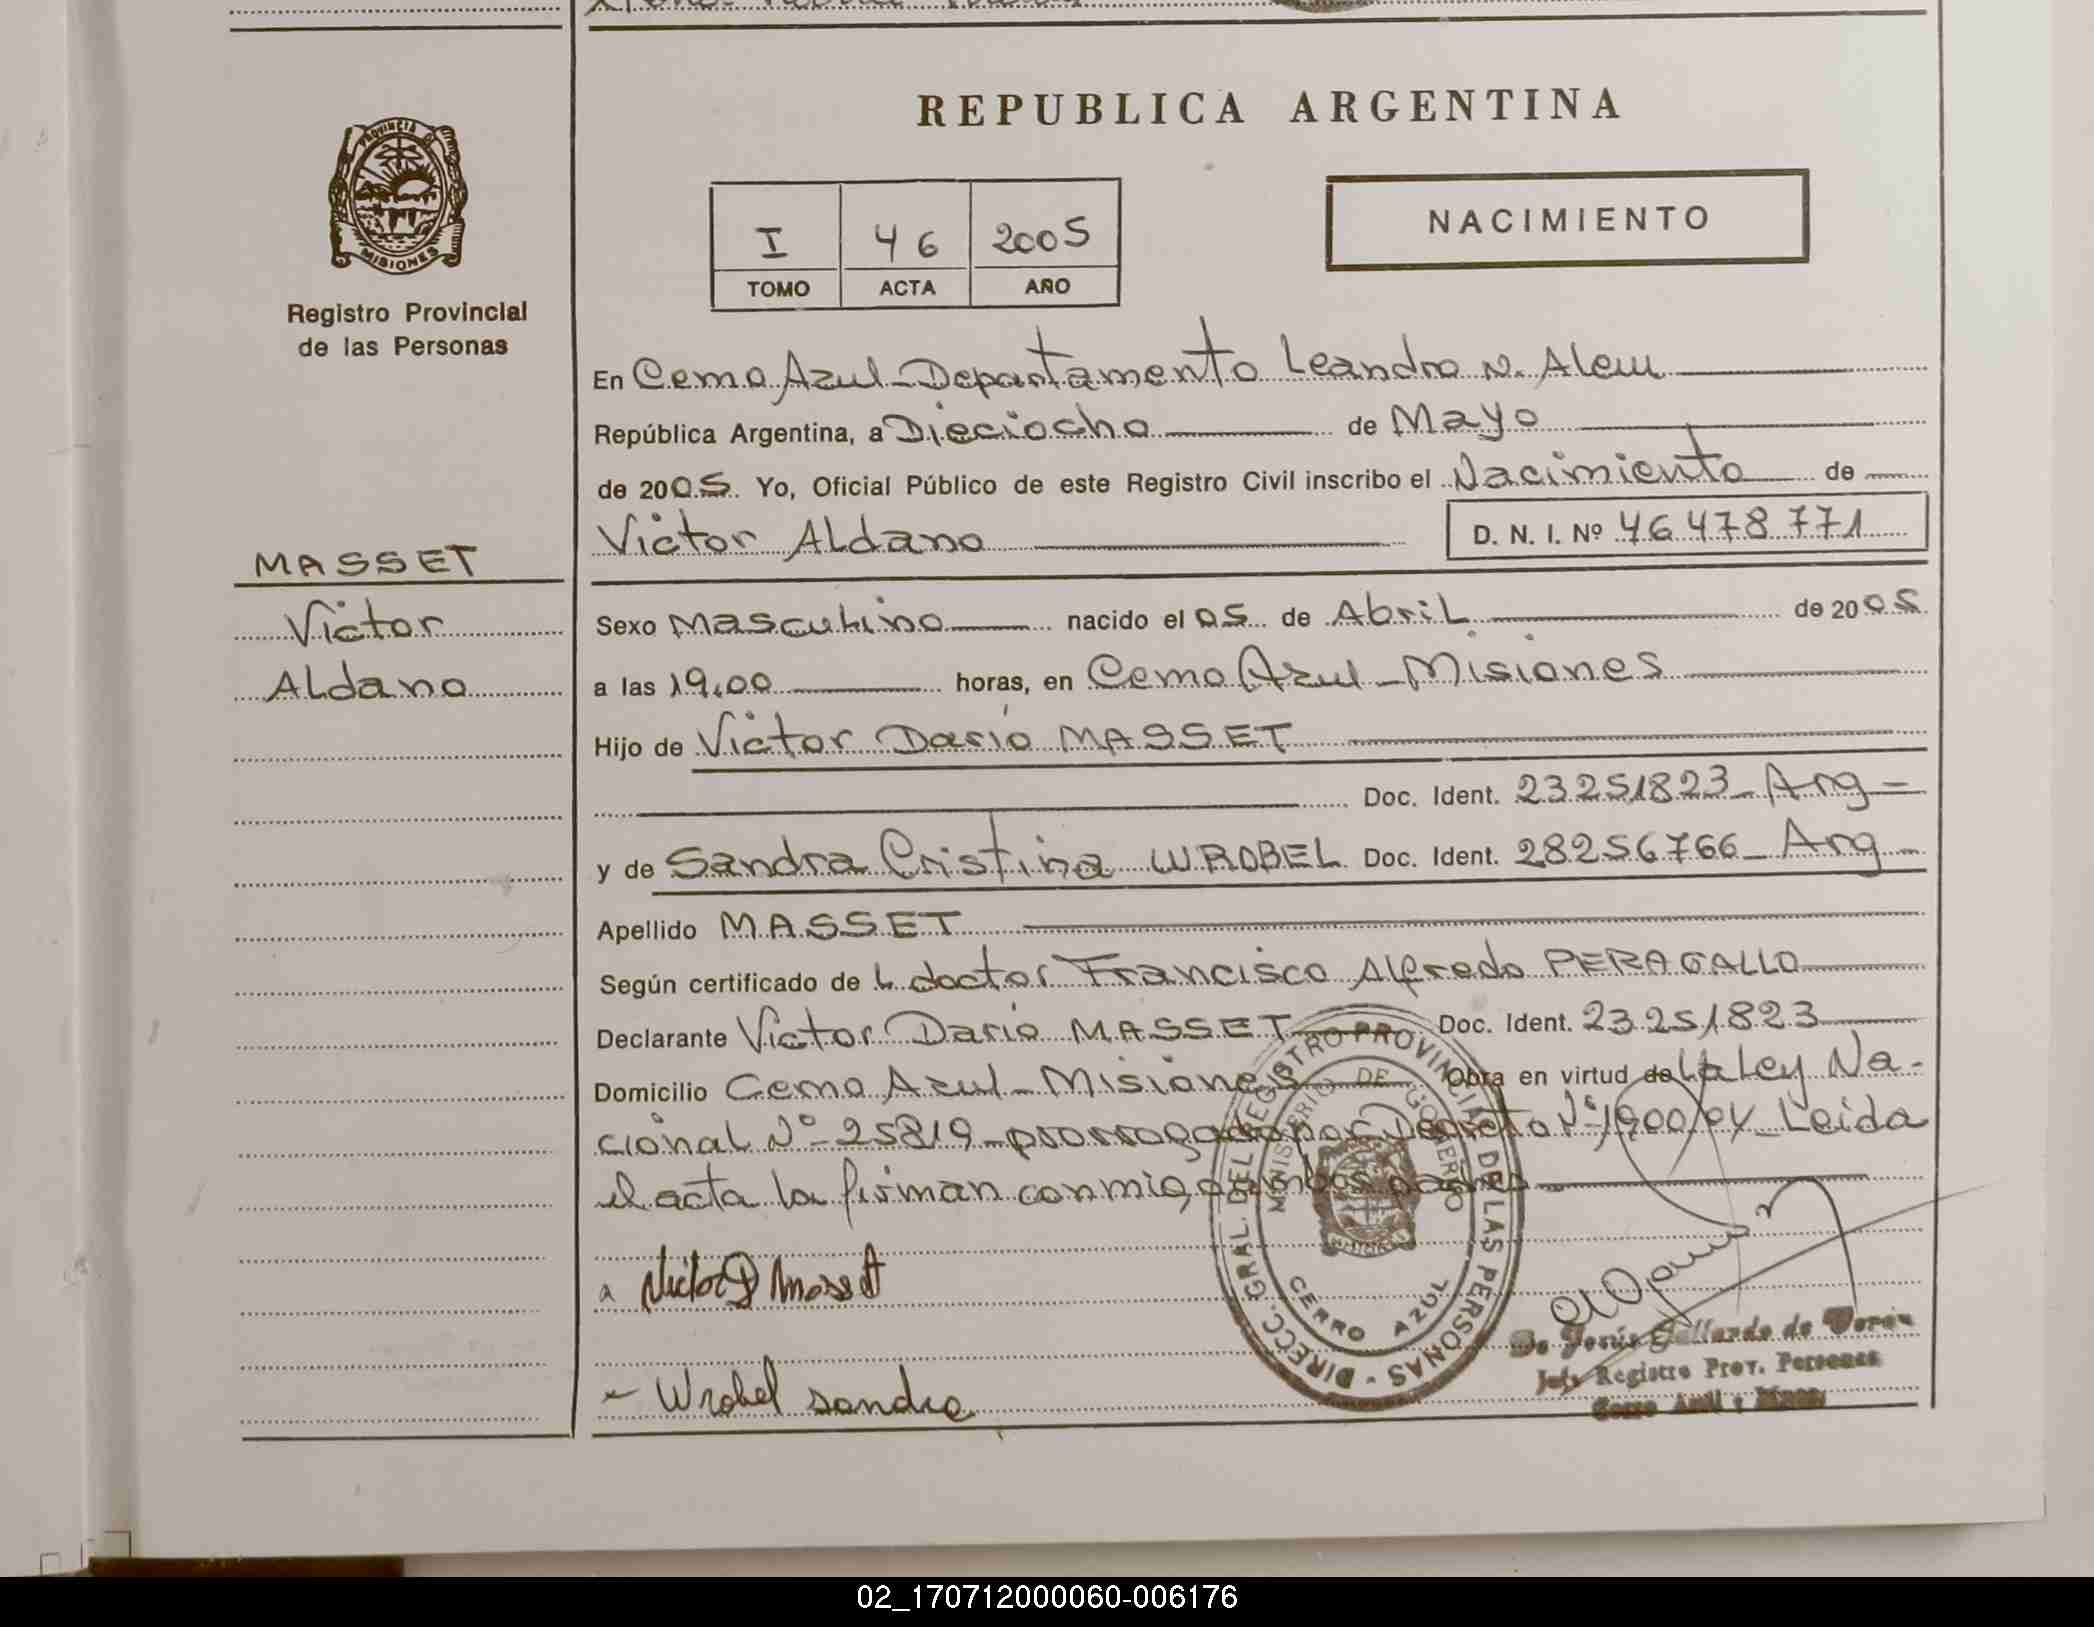 REPUBLICA ARGENTINA
PROVINCIA DE MISIONES
Registro Provincial
de las Personas
I 46 2005
TOMO ACTA AÑO
NACIMIENTO
En Cerro Azul - Departamento Leandro N. Alem
República Argentina, a Dieciocho de Mayo
de 2005. Yo, Oficial Público de este Registro Civil inscribo el Nacimiento de
Victor Aldano D. N. I. Nº 46.478.771
MASSET
Victor
Aldano
Sexo Masculino nacido el 05 de Abril de 2005
a las 19,00 horas, en Cerro Azul - Misiones
Hijo de Victor Dario MASSET
Doc. Ident. 23251823 - Arg -
y de Sandra Cristina WROBEL Doc. Ident. 28256766 - Arg -
Apellido MASSET
Según certificado de L doctor Francisco Alfredo PERAGALLO
Declarante Victor Dario MASSET Doc. Ident. 23251823
Domicilio Cerro Azul - Misiones Obra en virtud de La Ley Na-
cional Nº 25819 prorrogado por Decreto Nº 1900/04 - Leida
el acta la firman conmigo ambos padres
Victor D Masset
Wrobel Sandra
DIRECC. GRAL. DEL REGISTRO PROVINCIAL DE LAS PERSONAS
MINISTERIO DE GOBIERNO
CERRO AZUL
De Jesús Gallardo de
Jefe Registro Prov. Personas
Cerro Azul
02_170712000060-006176